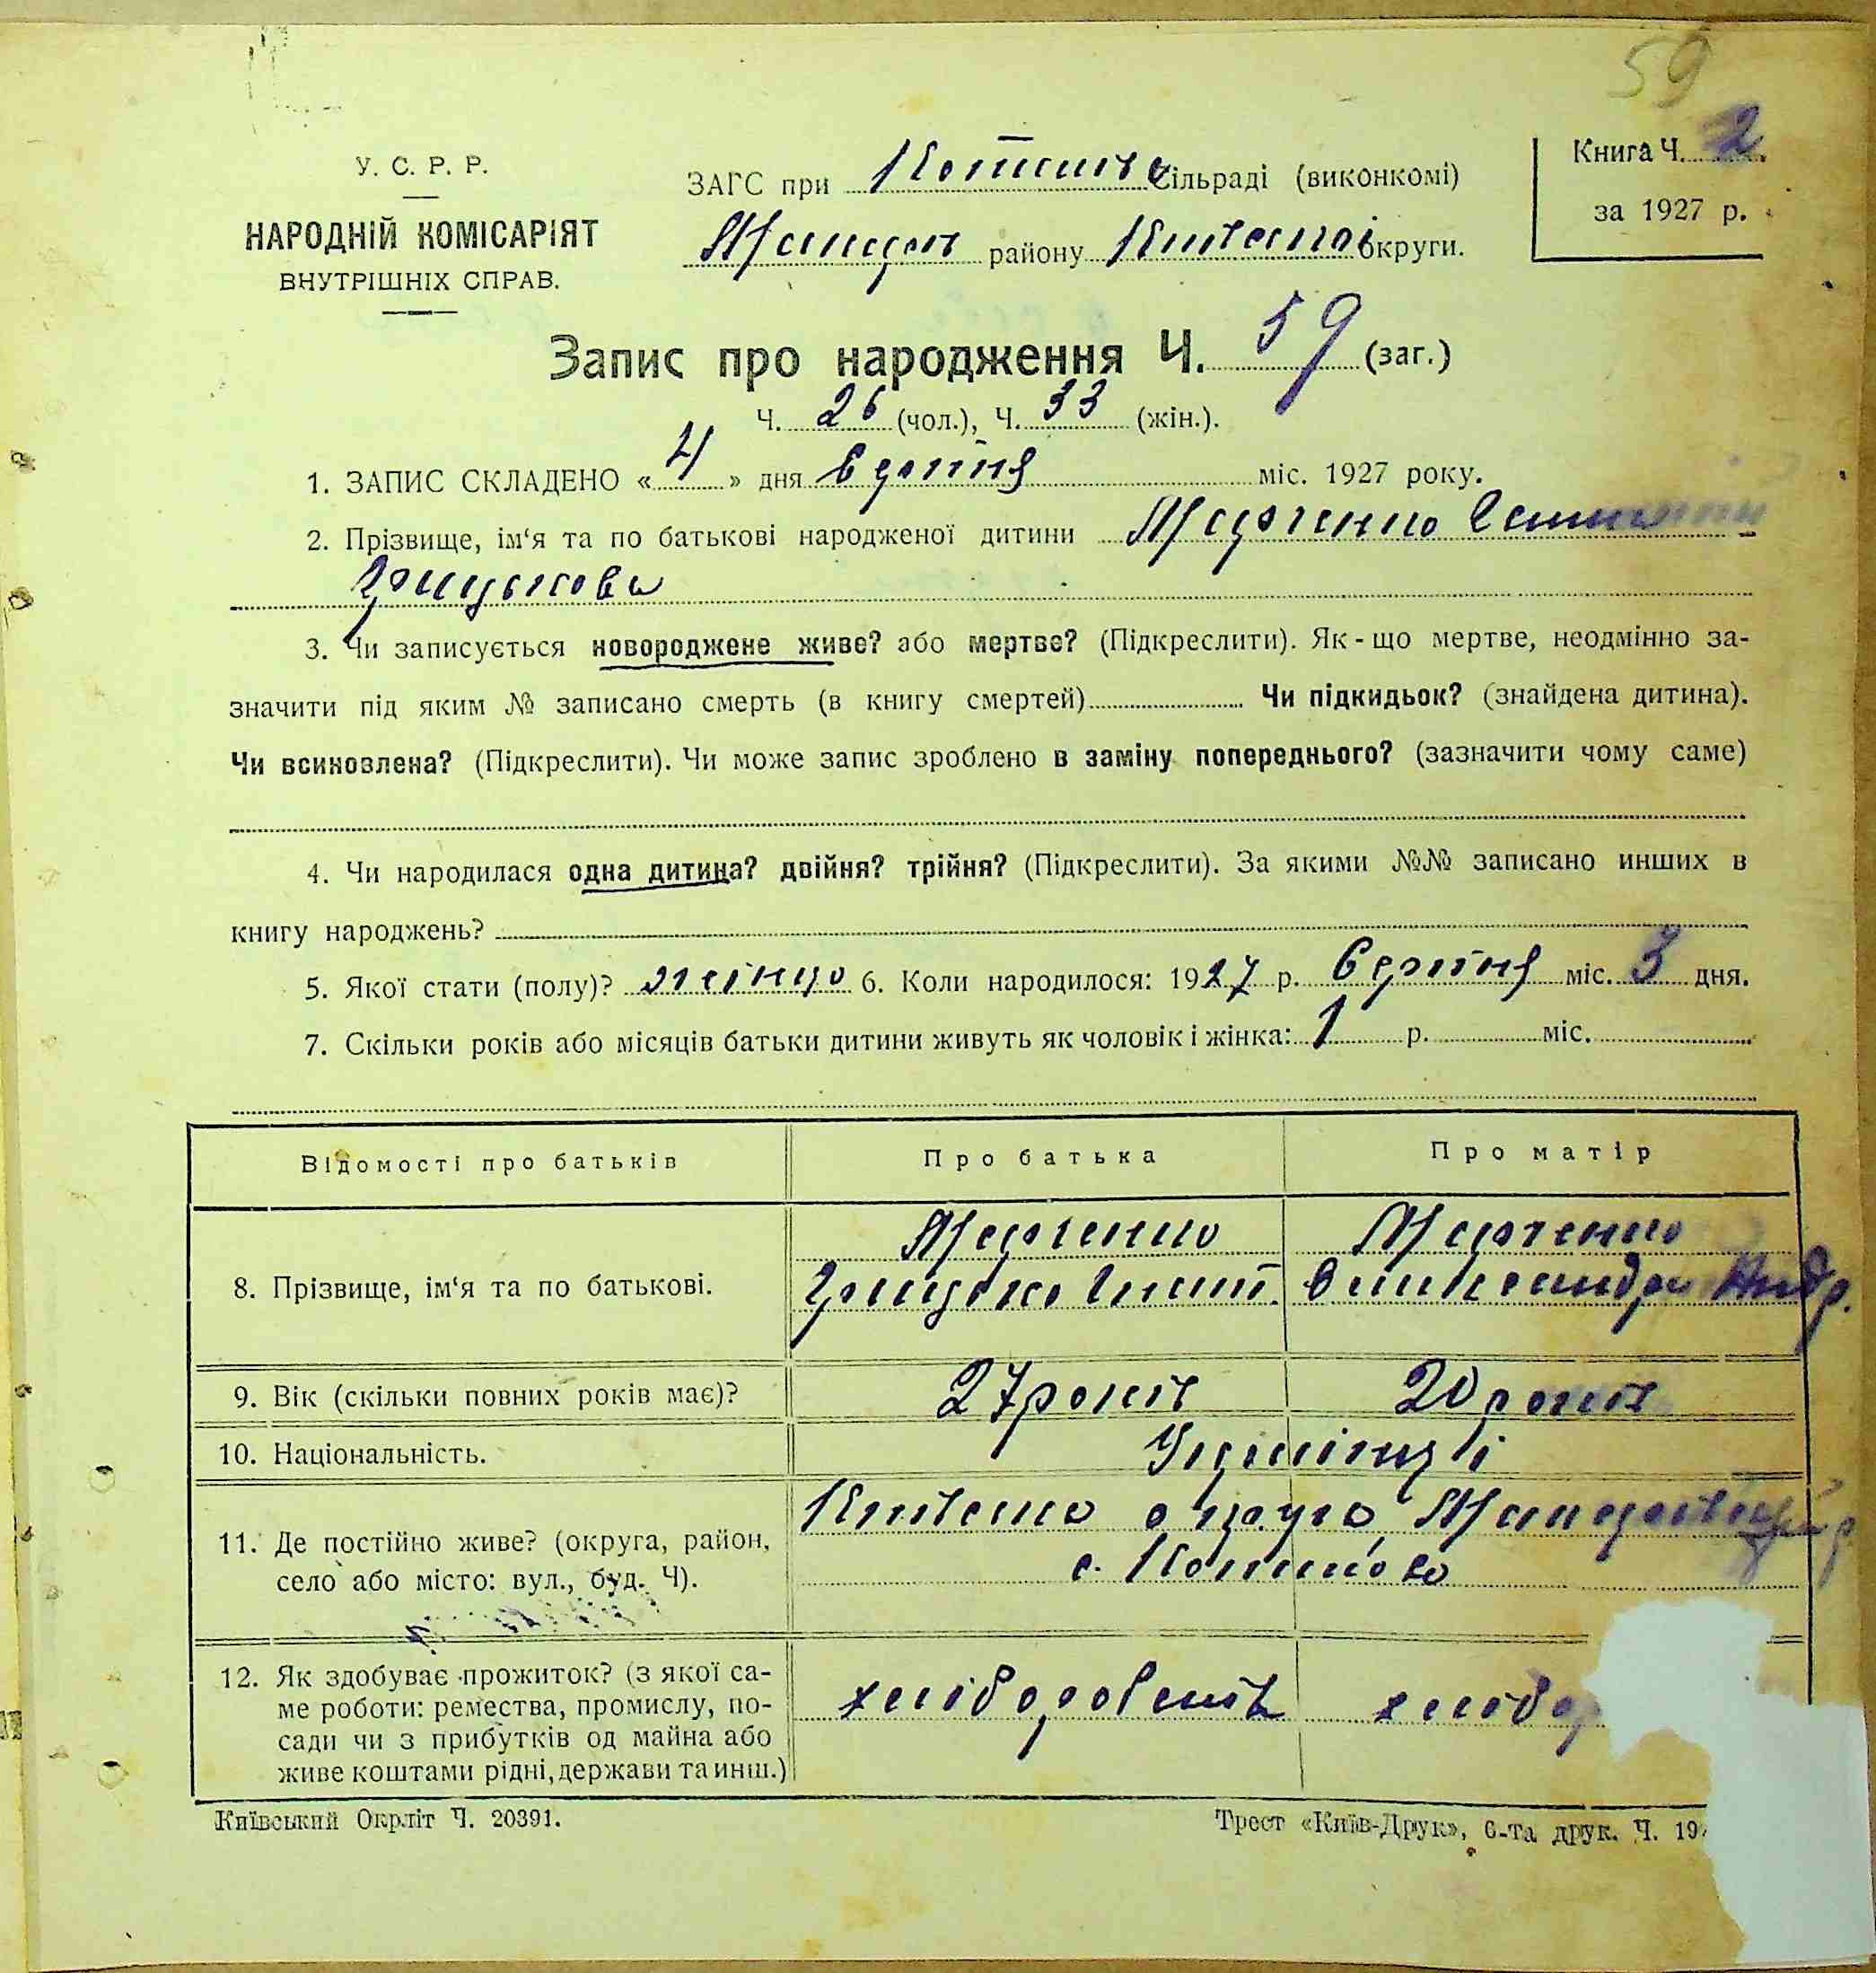 59
У. С. Р. Р.
НАРОДНІЙ КОМІСАРІЯТ
ВНУТРІШНІХ СПРАВ.
ЗАГС при сільраді (виконкомі)
району округи.
Книга Ч. 2
за 1927 р.
Запис про народження Ч. 59 (заг.)
Ч. 26 (чол.), Ч. 33 (жін.).
1. ЗАПИС СКЛАДЕНО « 4 » дня Серпня міс. 1927 року.
2. Прізвище, ім‘я та по батькові народженої дитини Марченко
3. Чи записується новороджене живе? або мертве? (Підкреслити). Як-що мертве, неодмінно за-
значити під яким № записано смерть (в книгу смертей) Чи підкидьок? (знайдена дитина).
Чи всиновлена? (Підкреслити). Чи може запис зроблено в заміну попереднього? (зазначити чому саме)
4. Чи народилася одна дитина? двійня? трійня? (Підкреслити). За якими №№ записано инших в
книгу народжень?
5. Якої стати (полу)? 6. Коли народилося: 1927 р. Серпня міс. 3 дня.
7. Скільки років або місяців батьки дитини живуть як чоловік і жінка: 1 р. міс.
Відомості про батьків Про батька Про матір
8. Прізвище, ім‘я та по батькові.
Марченко Марченко
Грицько Олександра Андр.
9. Вік (скільки повних років має)? 27 років 20 років
10. Національність. Українці
11. Де постійно живе? (округа, район,
село або місто: вул., буд. Ч).
округа
с.
12. Як здобуває прожиток? (з якої са-
ме роботи: ремества, промислу, по-
сади чи з прибутків од майна або
живе коштами рідні, держави та инш.)
хлібор
Київський Окрліт Ч. 20391.
Трест «Київ-Друк», 6-та друк. Ч. 19